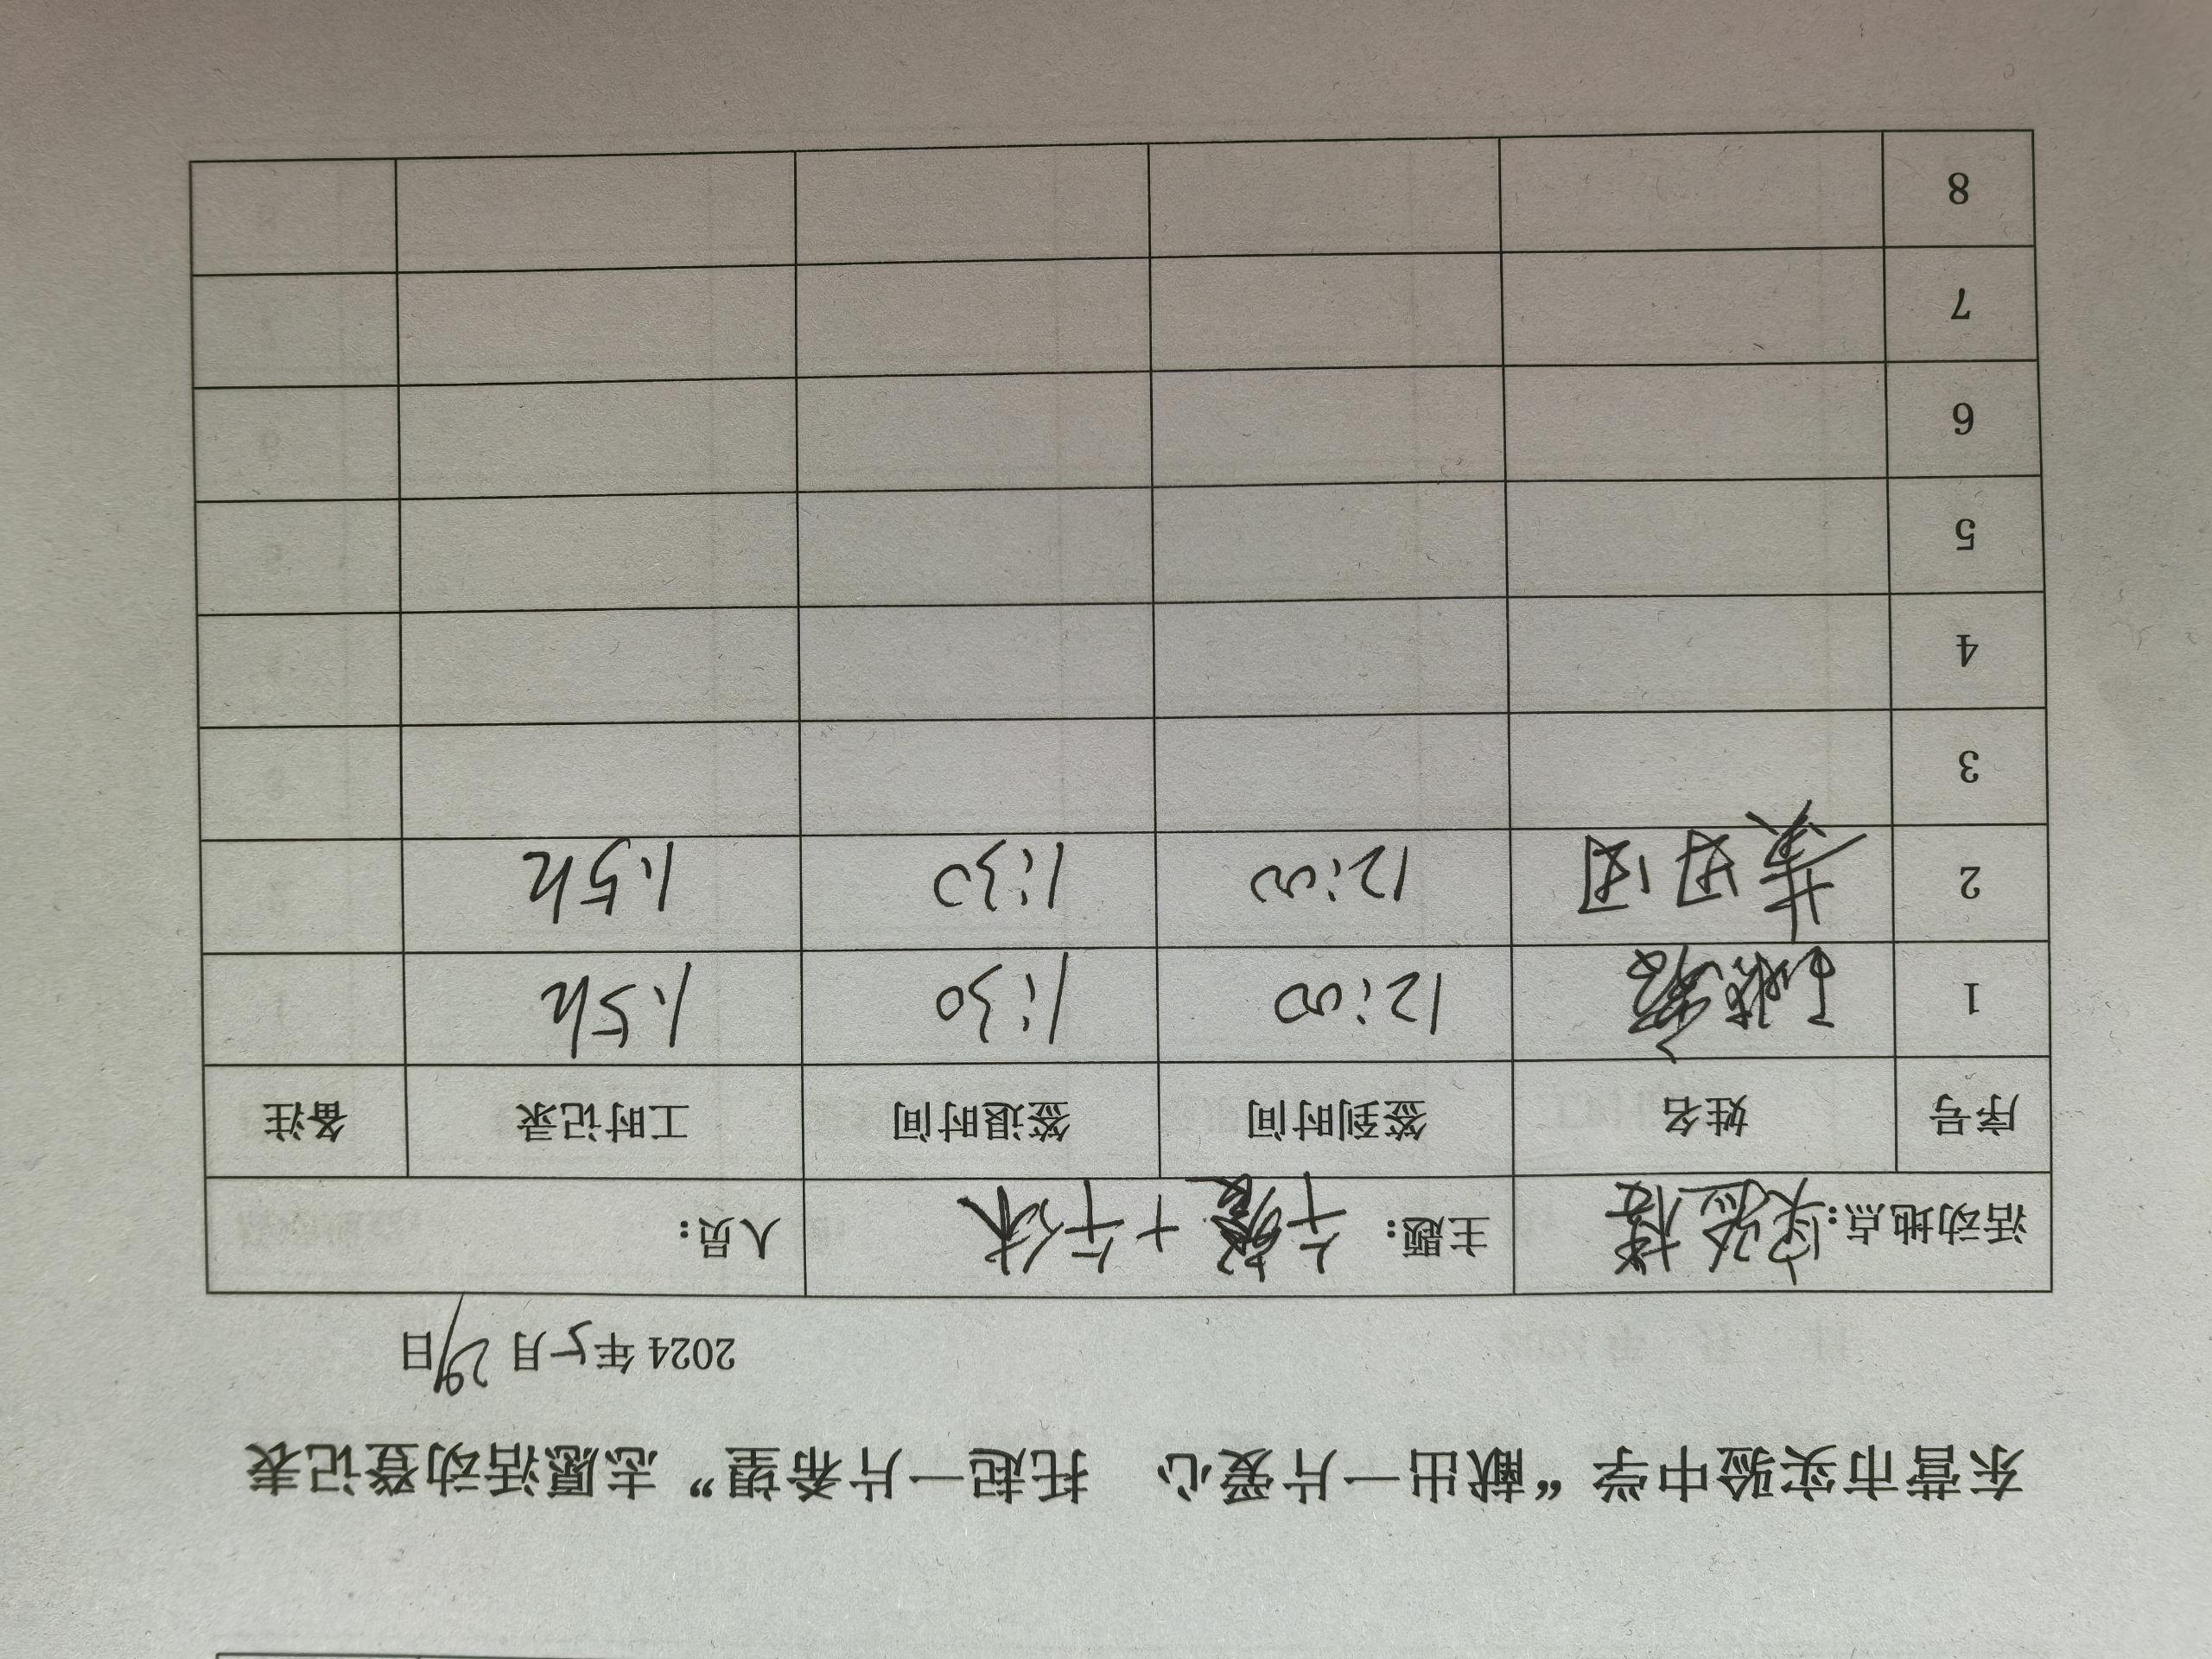 东营市实验中学“献出一片爱心 托起一片希望”志愿活动登记表
2024年5月29日
活动地点：实验楼 主题：午餐+午休 人员：
序号 姓名 签到时间 签退时间 工时记录 备注
1 12:00 1:30 1.5h
2 12:00 1:30 1.5h
3
4
5
6
7
8